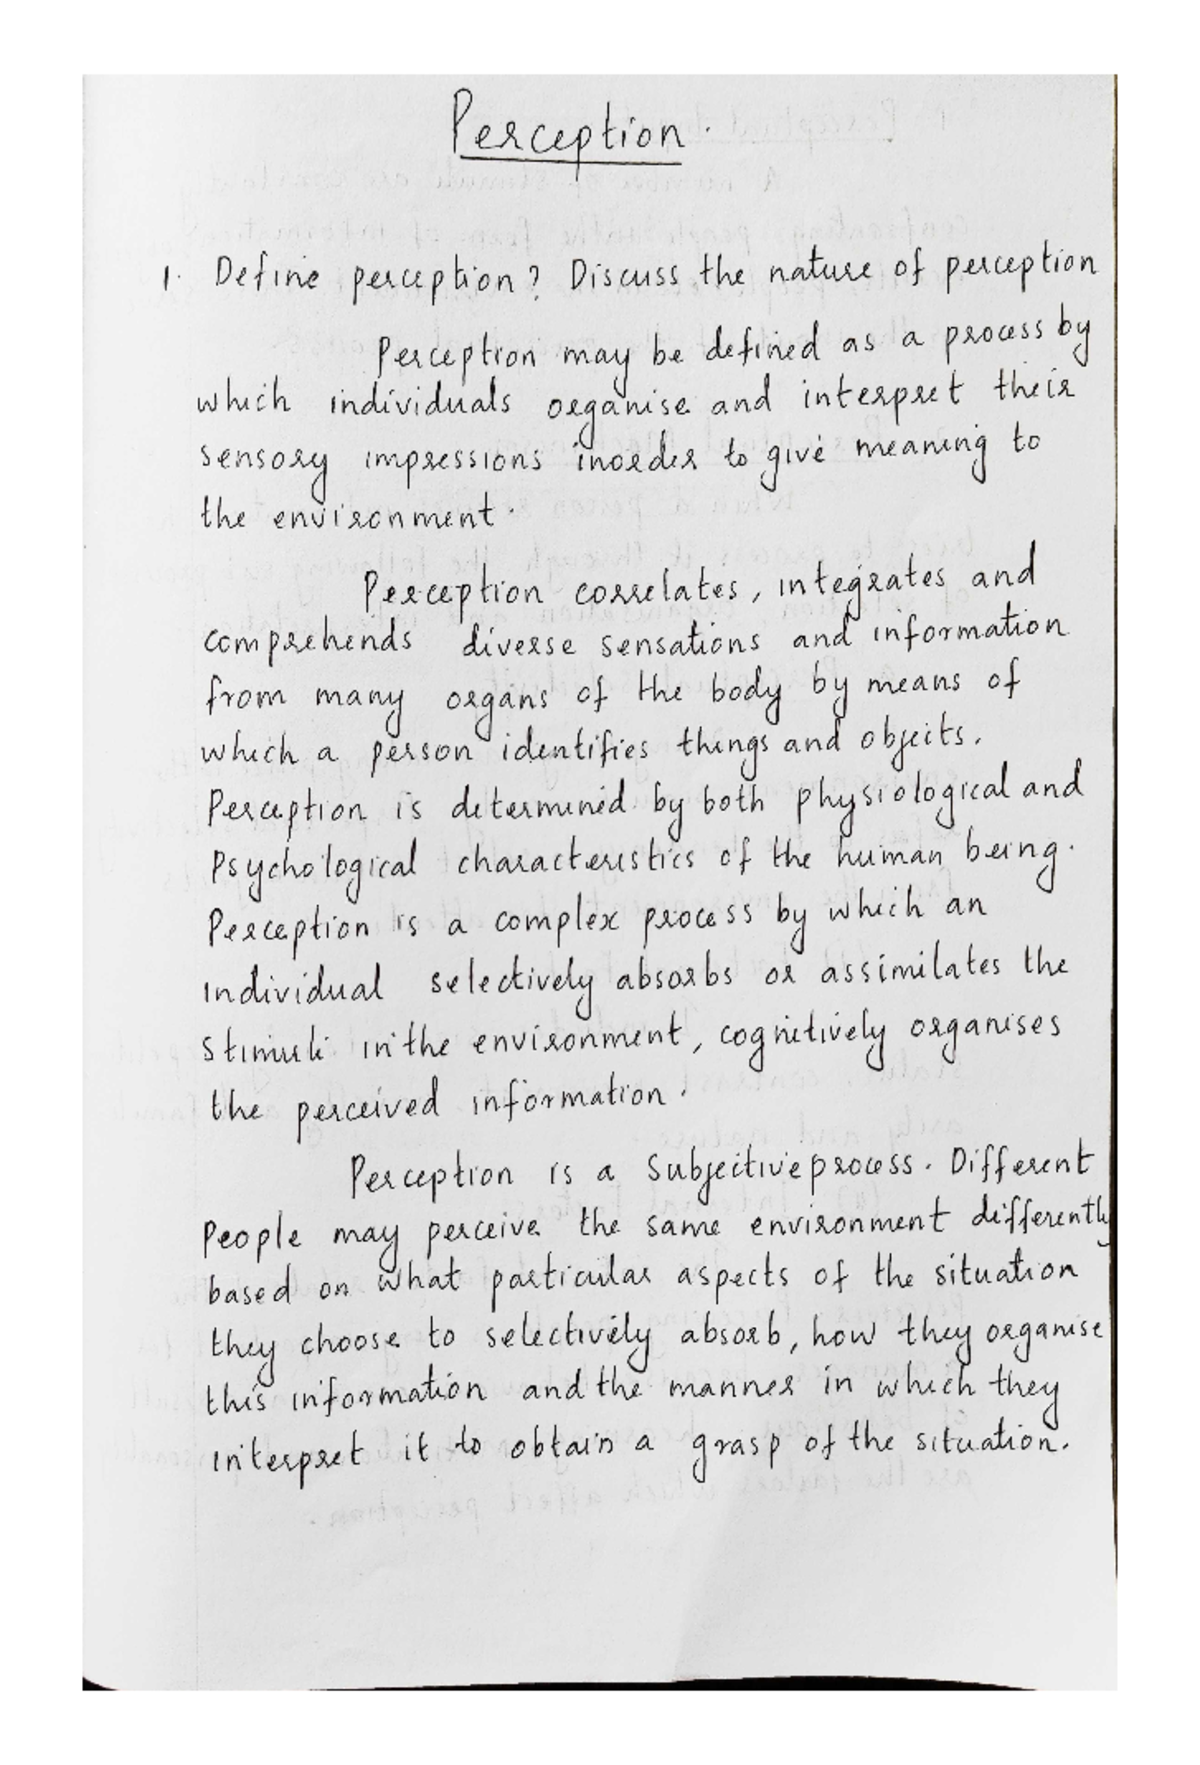 Perception.
1. Define perception? Discuss the nature of perception
Perception may be defined as a process by
which individuals organise and interpret their
sensory impressions inorder to give meaning to
the environment.
Perception correlates, integrates and
comprehends diverse sensations and information
from many organs of the body by means of
which a person identifies things and objects.
Perception is determined by both physiological and
Psychological characteristics of the human being.
Perception is a complex process by which an
individual selectively absorbs or assimilates the
stimuli in the environment, cognitively organises
the perceived information.
Perception is a Subjective process. Different
People may perceive the same environment differently
based on what particular aspects of the situation
they choose to selectively absorb, how they organise
this information and the manner in which they
interpret it to obtain a grasp of the situation.